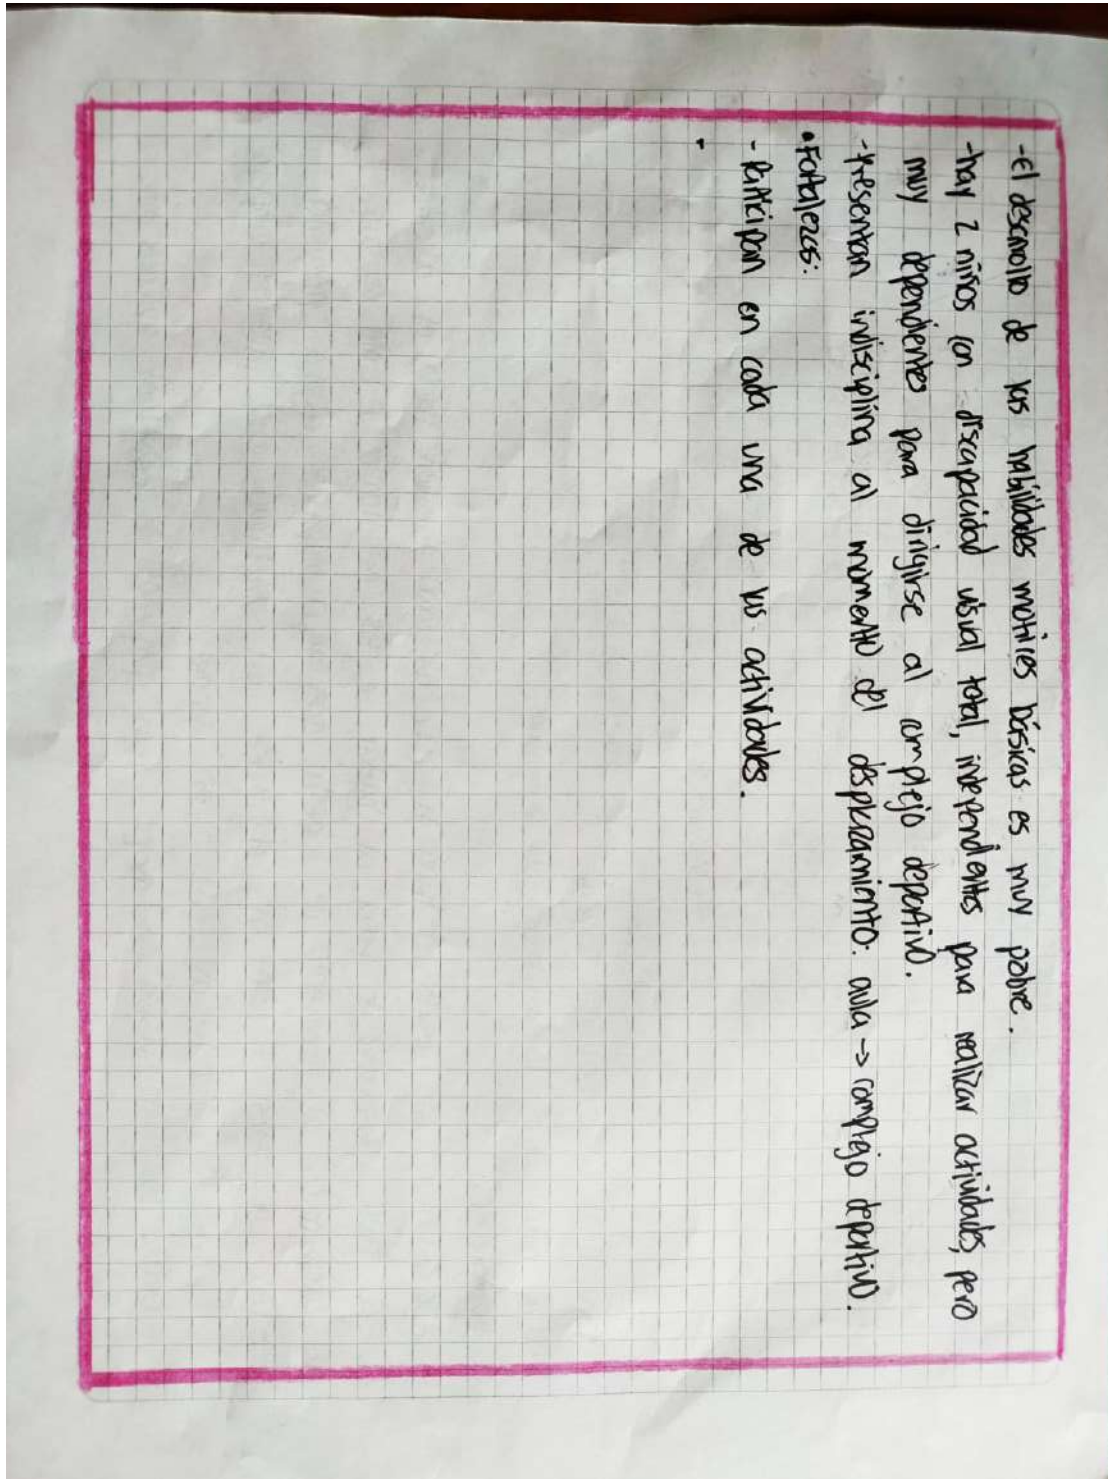 -El desarrollo de las habilidades motrices básicas es muy pobre.
-hay 2 niños con discapacidad visual total, independientes para realizar actividades, pero
muy dependientes para dirigirse al complejo deportivo.
-Presentan indisciplina al momento del desplazamiento: aula -> complejo deportivo.
•Fortalezas:
-Participan en cada una de las actividades.
-